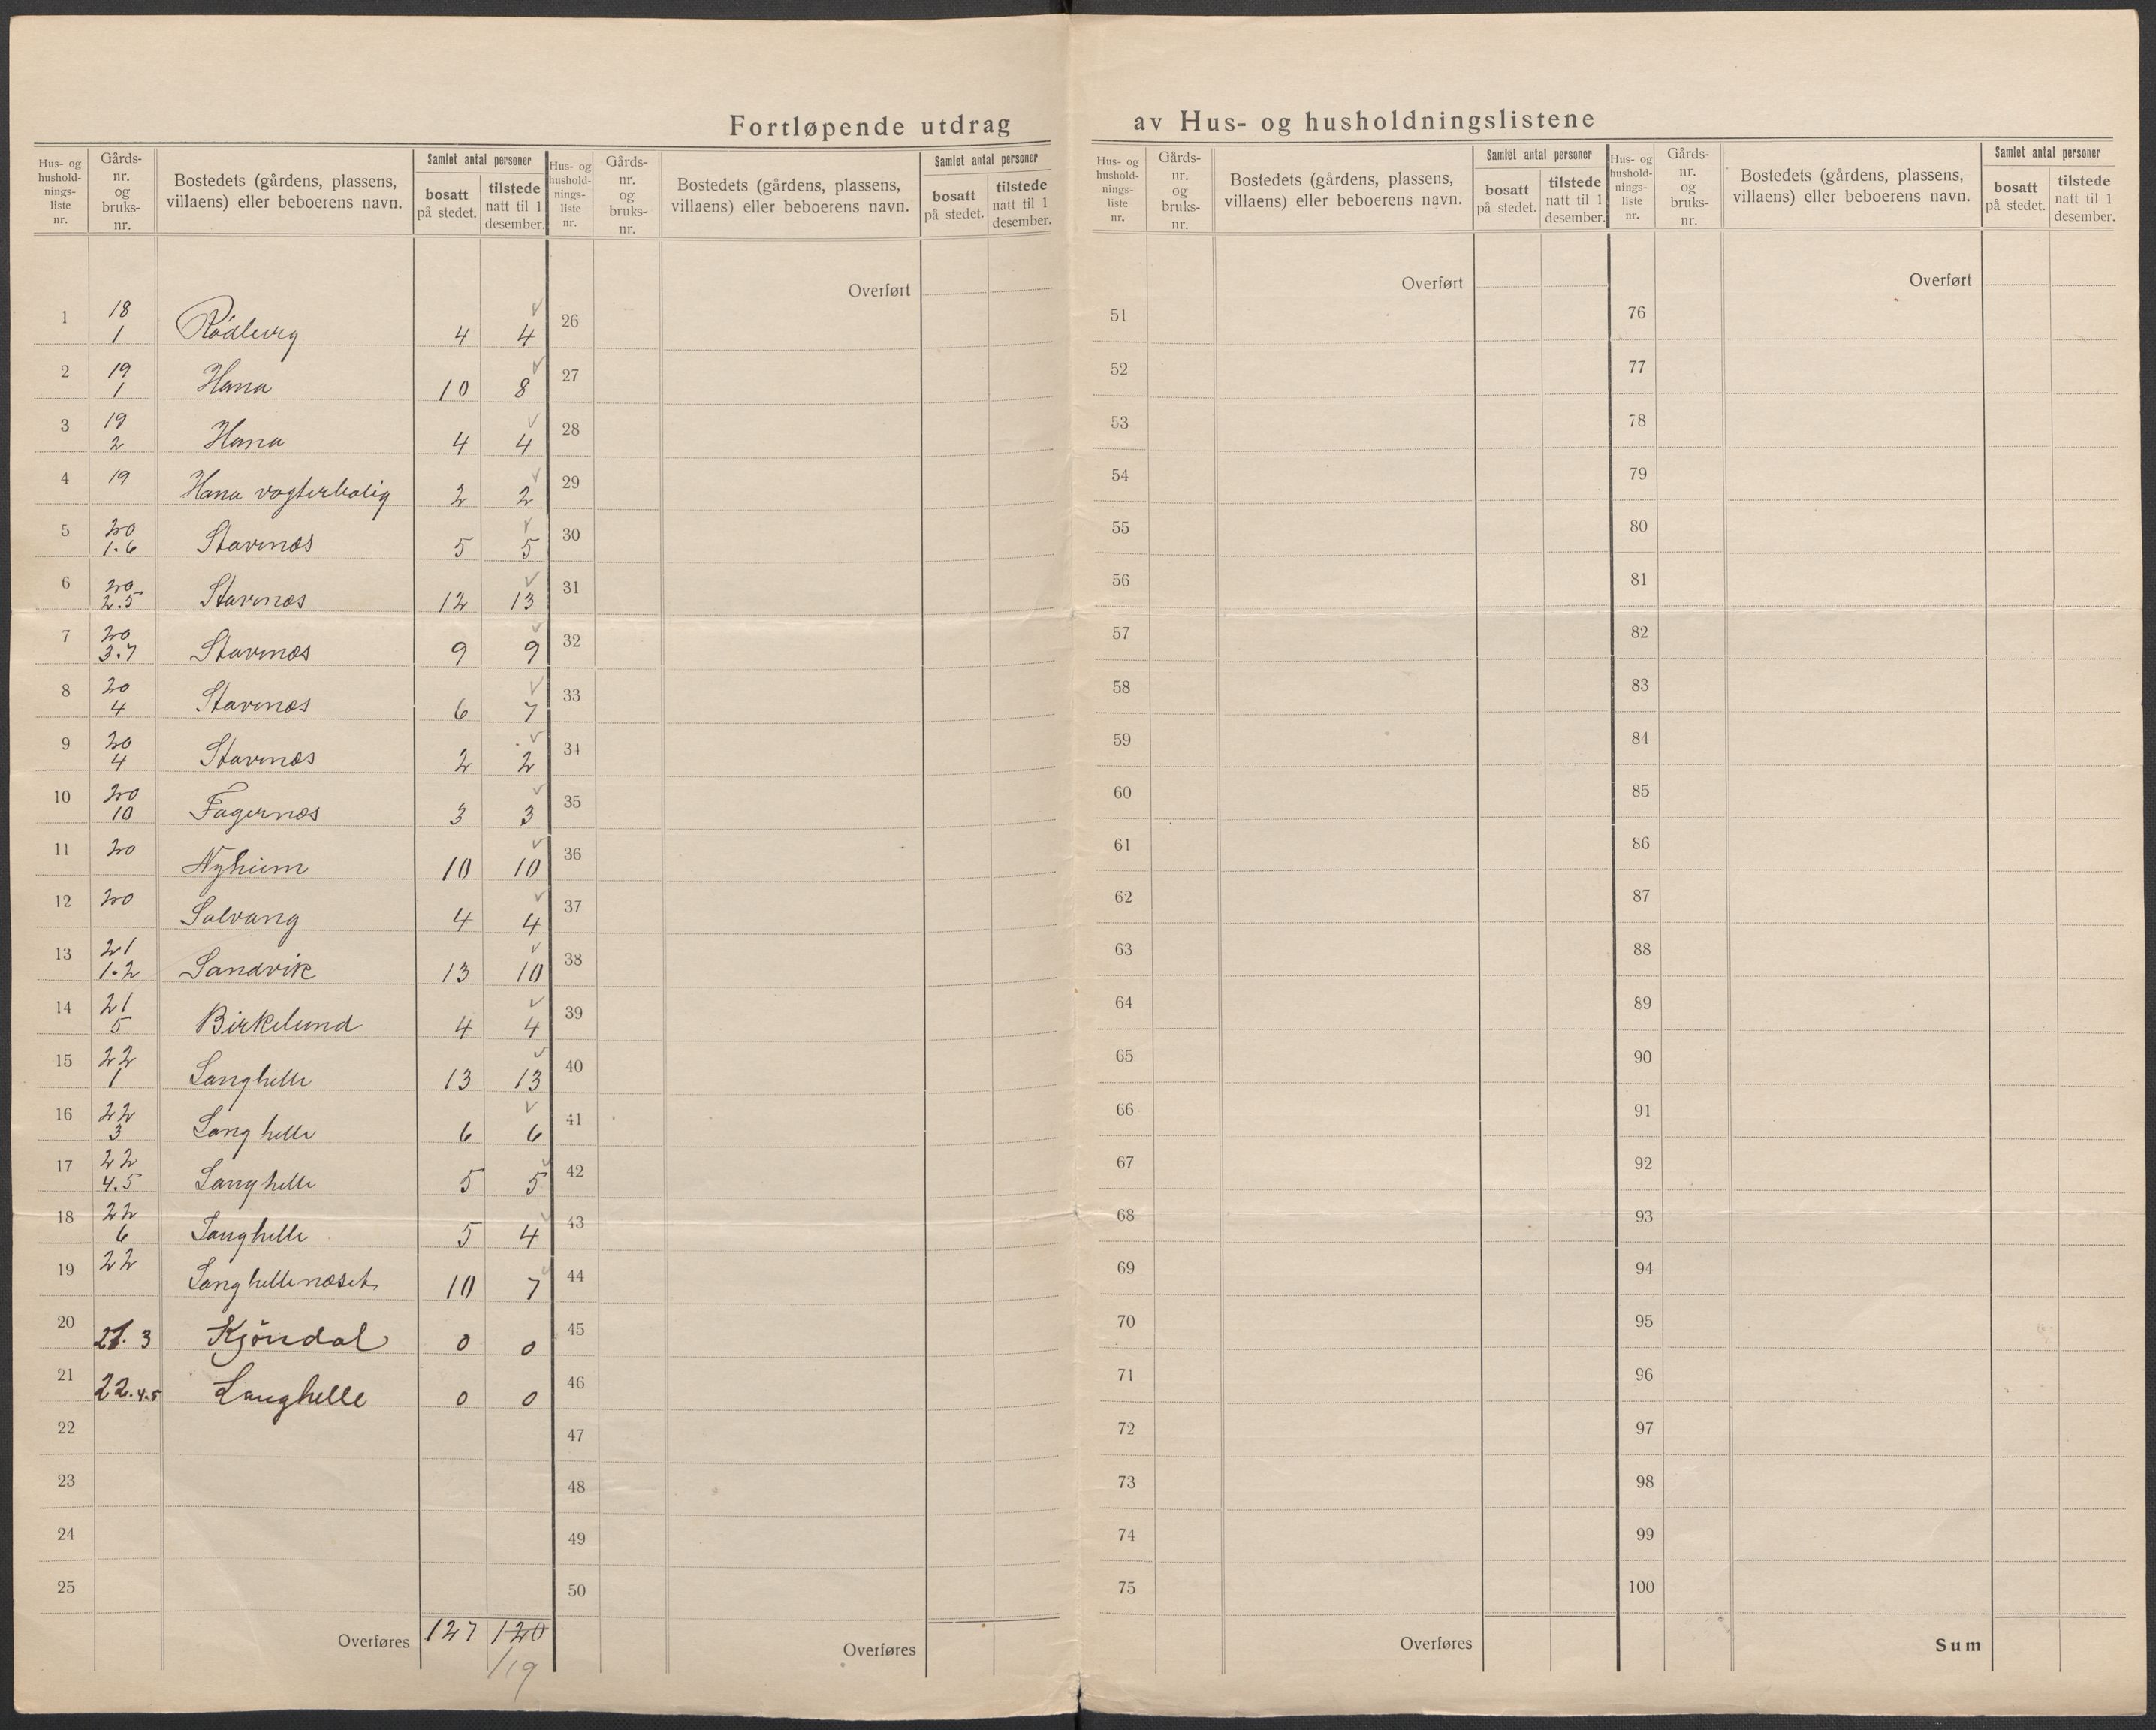 Fortløpende utdrag av Hus- og husholdningslistene
Hus- og husholdnings-liste nr. | Gårds-nr. og bruks-nr. | Bostedets (gårdens, plassens, villaens) eller beboerens navn. | Samlet antal personer | bosatt på stedet. | tilstede natt til 1 desember.
Hus- og husholdnings-liste nr. | Gårds-nr. og bruks-nr. | Bostedets (gårdens, plassens, villaens) eller beboerens navn. | Samlet antal personer | bosatt på stedet. | tilstede natt til 1 desember.
Hus- og husholdnings-liste nr. | Gårds-nr. og bruks-nr. | Bostedets (gårdens, plassens, villaens) eller beboerens navn. | Samlet antal personer | bosatt på stedet. | tilstede natt til 1 desember.
Hus- og husholdnings-liste nr. | Gårds-nr. og bruks-nr. | Bostedets (gårdens, plassens, villaens) eller beboerens navn. | Samlet antal personer | bosatt på stedet. | tilstede natt til 1 desember.
1 18 1 Rödberg 4 4
2 19 1 Hana 10 8
3 19 2 Hana 4 4
4 19 Hana vogterbolig 2 2
5 20 1.6 Stavnæs 5 5
6 20 2.5 Stavnæs 12 13
7 20 3.7 Stavnæs 9 9
8 20 4 Stavnæs 6 7
9 20 4 Stavnæs 2 2
10 20 10 Fagernæs 3 3
11 20 Nyheim 10 10
12 20 Solvang 4 4
13 21 1.2 Sandvik 13 10
14 21 5 Birkelund 4 4
15 22 1 Langhelle 13 13
16 22 3 Langhelle 6 6
17 22 4.5 Langhelle 5 5
18 22 6 Langhelle 5 4
19 22 Langhellenæset 10 7
20 21. 3 Kjöndal 0 0
21 22. 4.5 Langhelle 0 0
22
23
24
25
Overføres 127 120
119
Overført
26
27
28
29
30
31
32
33
34
35
36
37
38
39
40
41
42
43
44
45
46
47
48
49
50
Overføres
Overført
51
52
53
54
55
56
57
58
59
60
61
62
63
64
65
66
67
68
69
70
71
72
73
74
75
Overføres
Overført
76
77
78
79
80
81
82
83
84
85
86
87
88
89
90
91
92
93
94
95
96
97
98
99
100
Sum